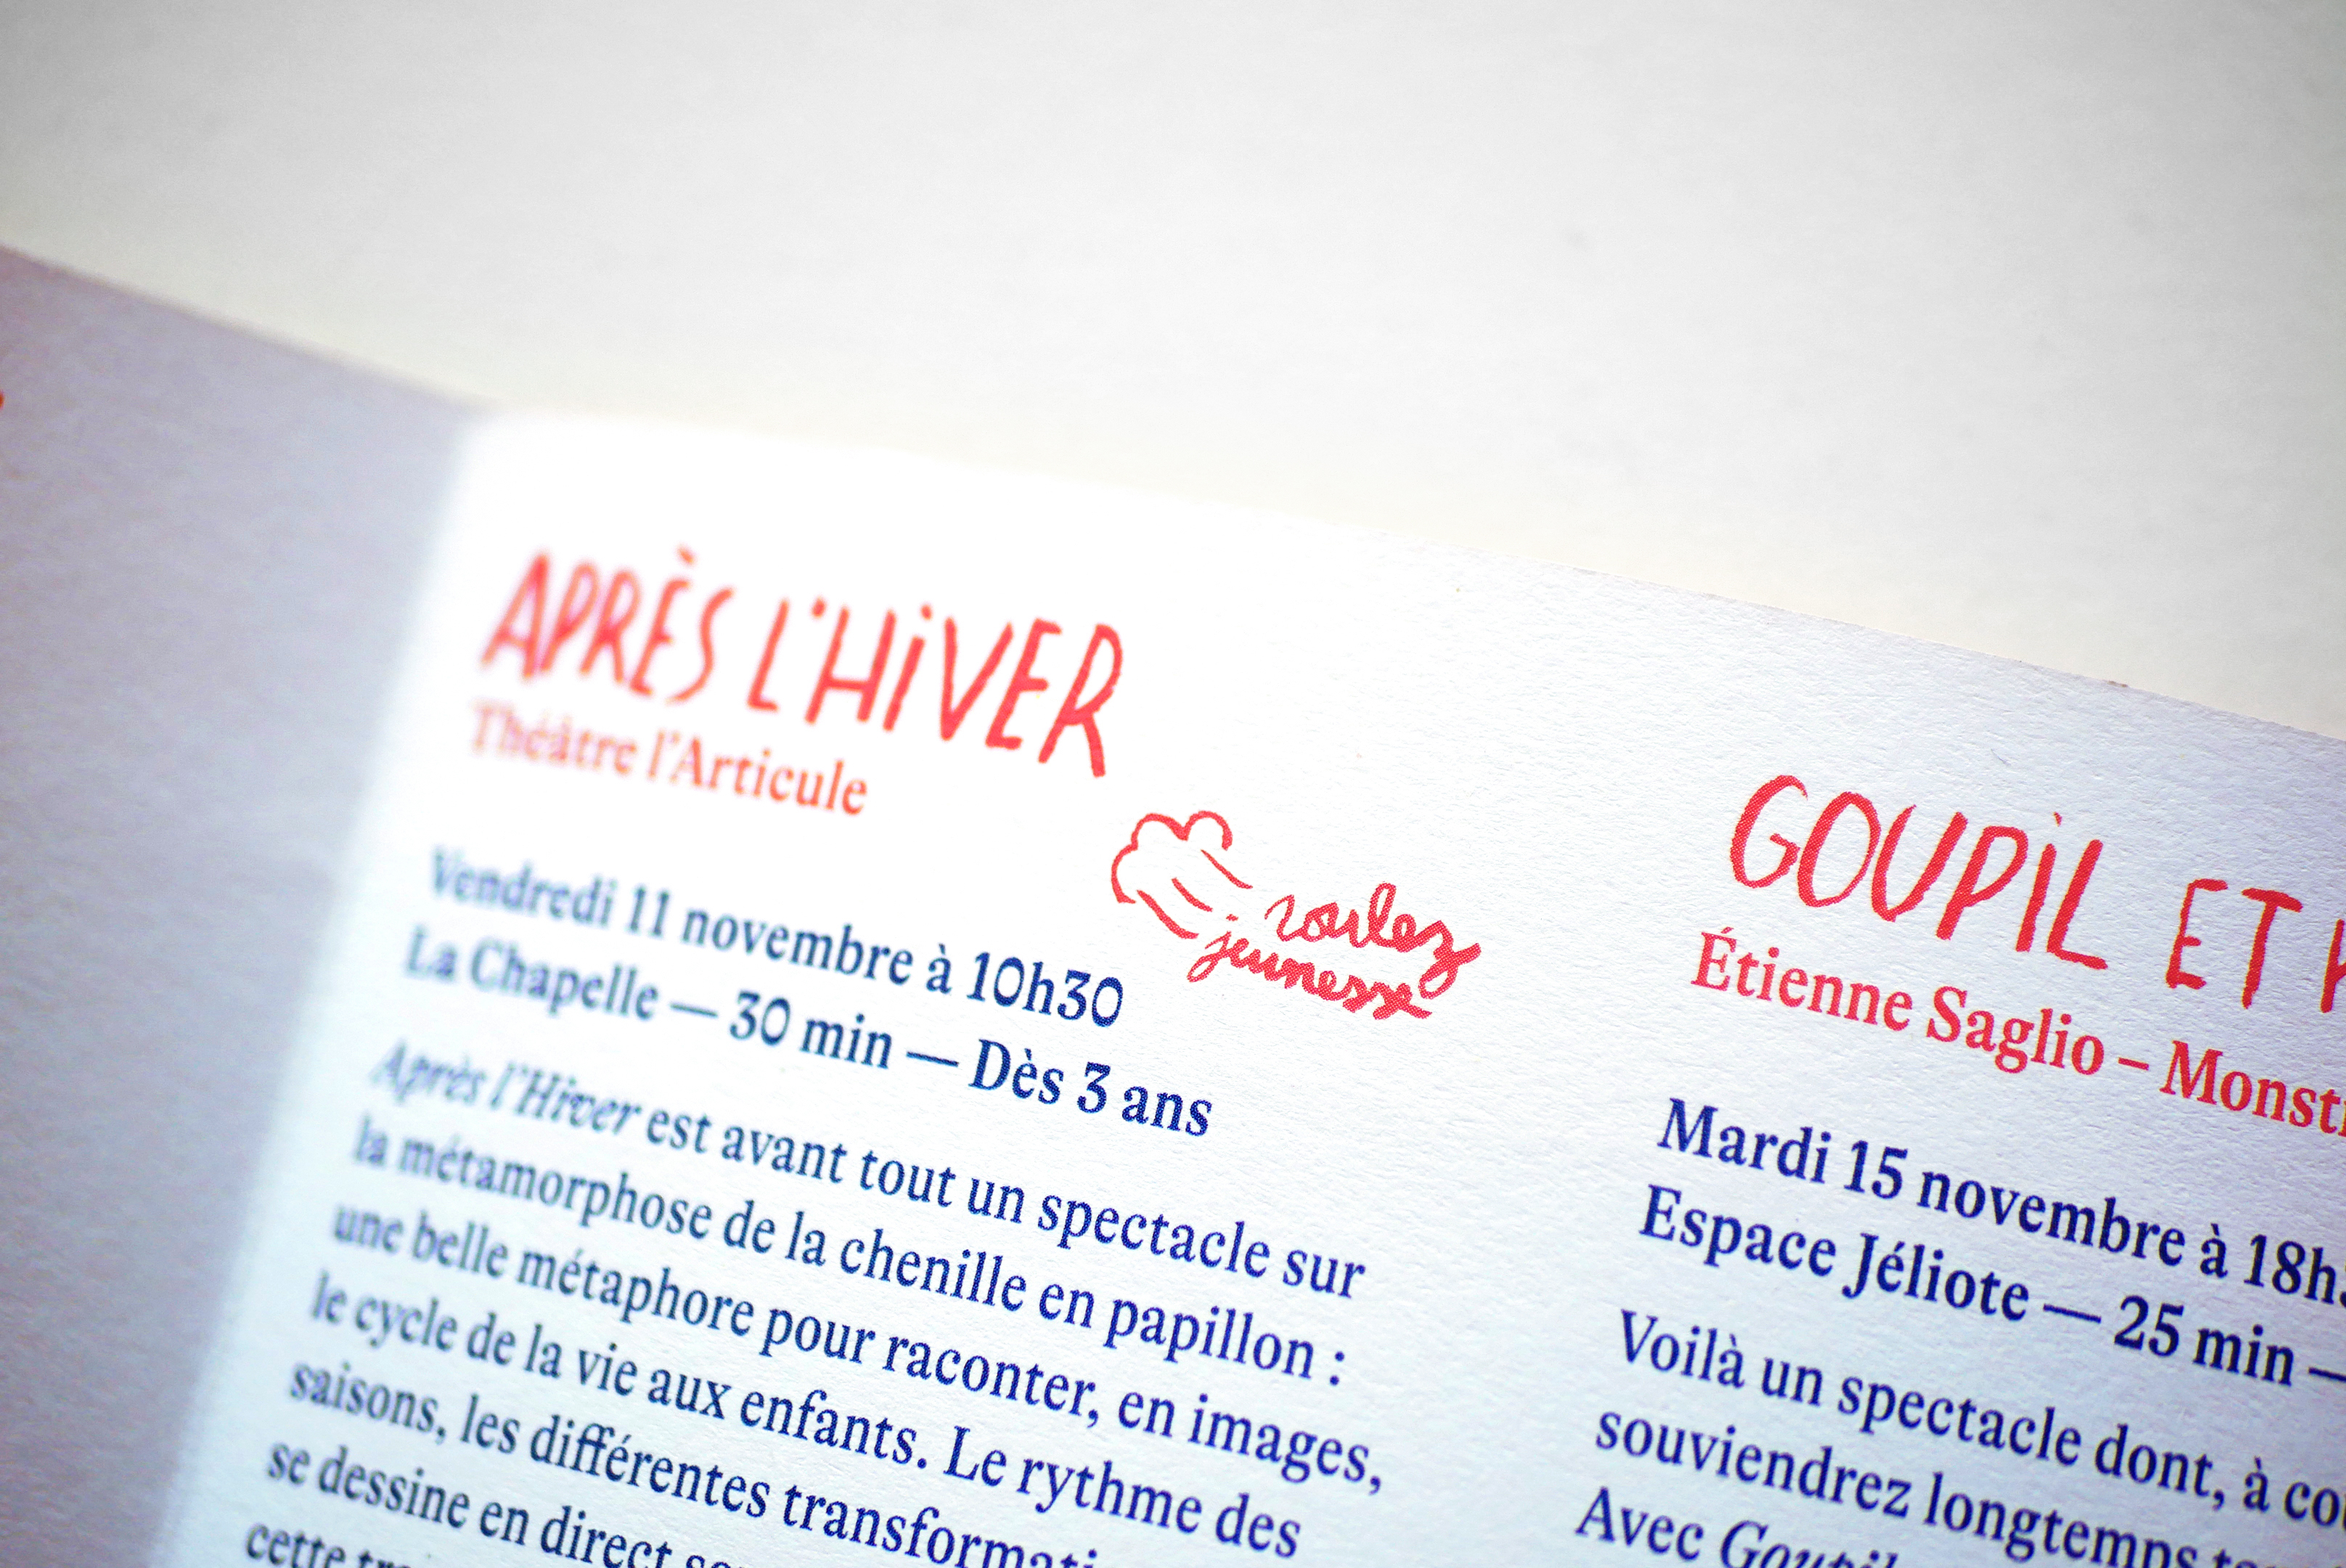 APRÈS L'HiVER
Théâtre l'Articule
roulez
jeunesse
Vendredi 11 novembre à 10h30
La Chapelle — 30 min — Dès 3 ans
Après l'Hiver est avant tout un spectacle sur
la métamorphose de la chenille en papillon :
une belle métaphore pour raconter, en images,
le cycle de la vie aux enfants. Le rythme des
saisons, les différentes
se dessine en direct
cette
GOUPiL ET
Étienne Saglio –
Mardi 15 novembre à
Espace Jéliote — 25 min —
Voilà un spectacle dont, à
souviendrez longtemps
Avec Goupil